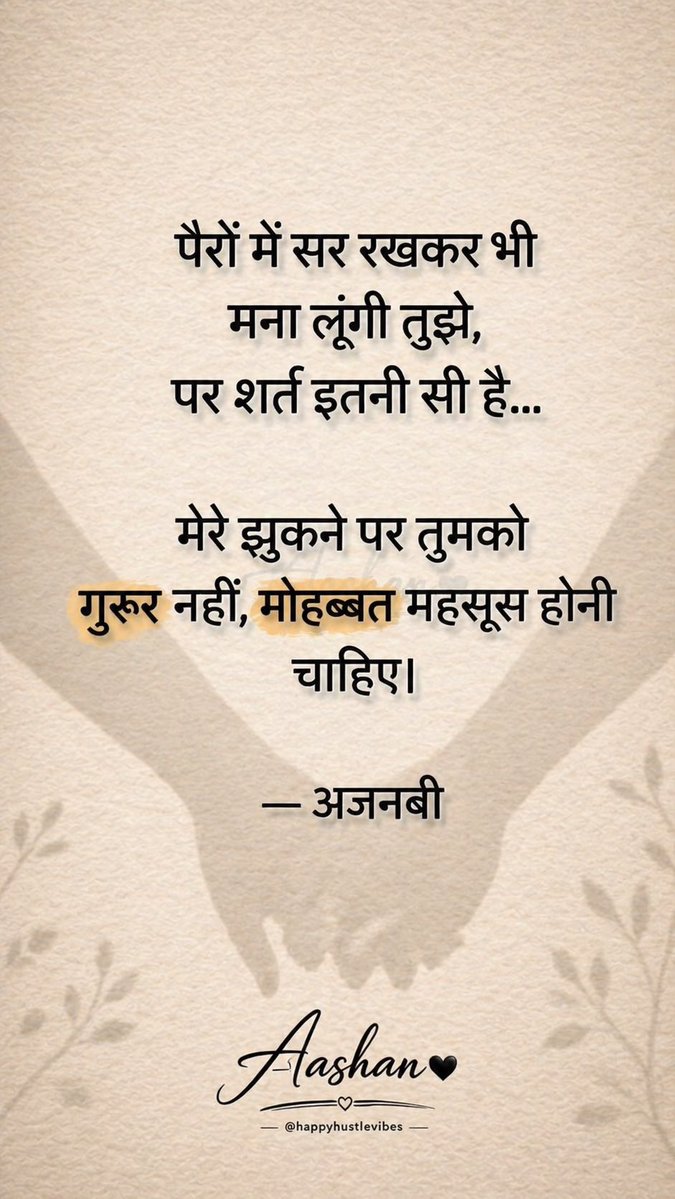 पैरों में सर रखकर भी
मना लूंगी तुझे,
पर शर्त इतनी सी है...
मेरे झुकने पर तुमको
गुरूर नहीं, मोहब्बत महसूस होनी
चाहिए।
— अजनबी
Aashan
— @happyhustlevibes —